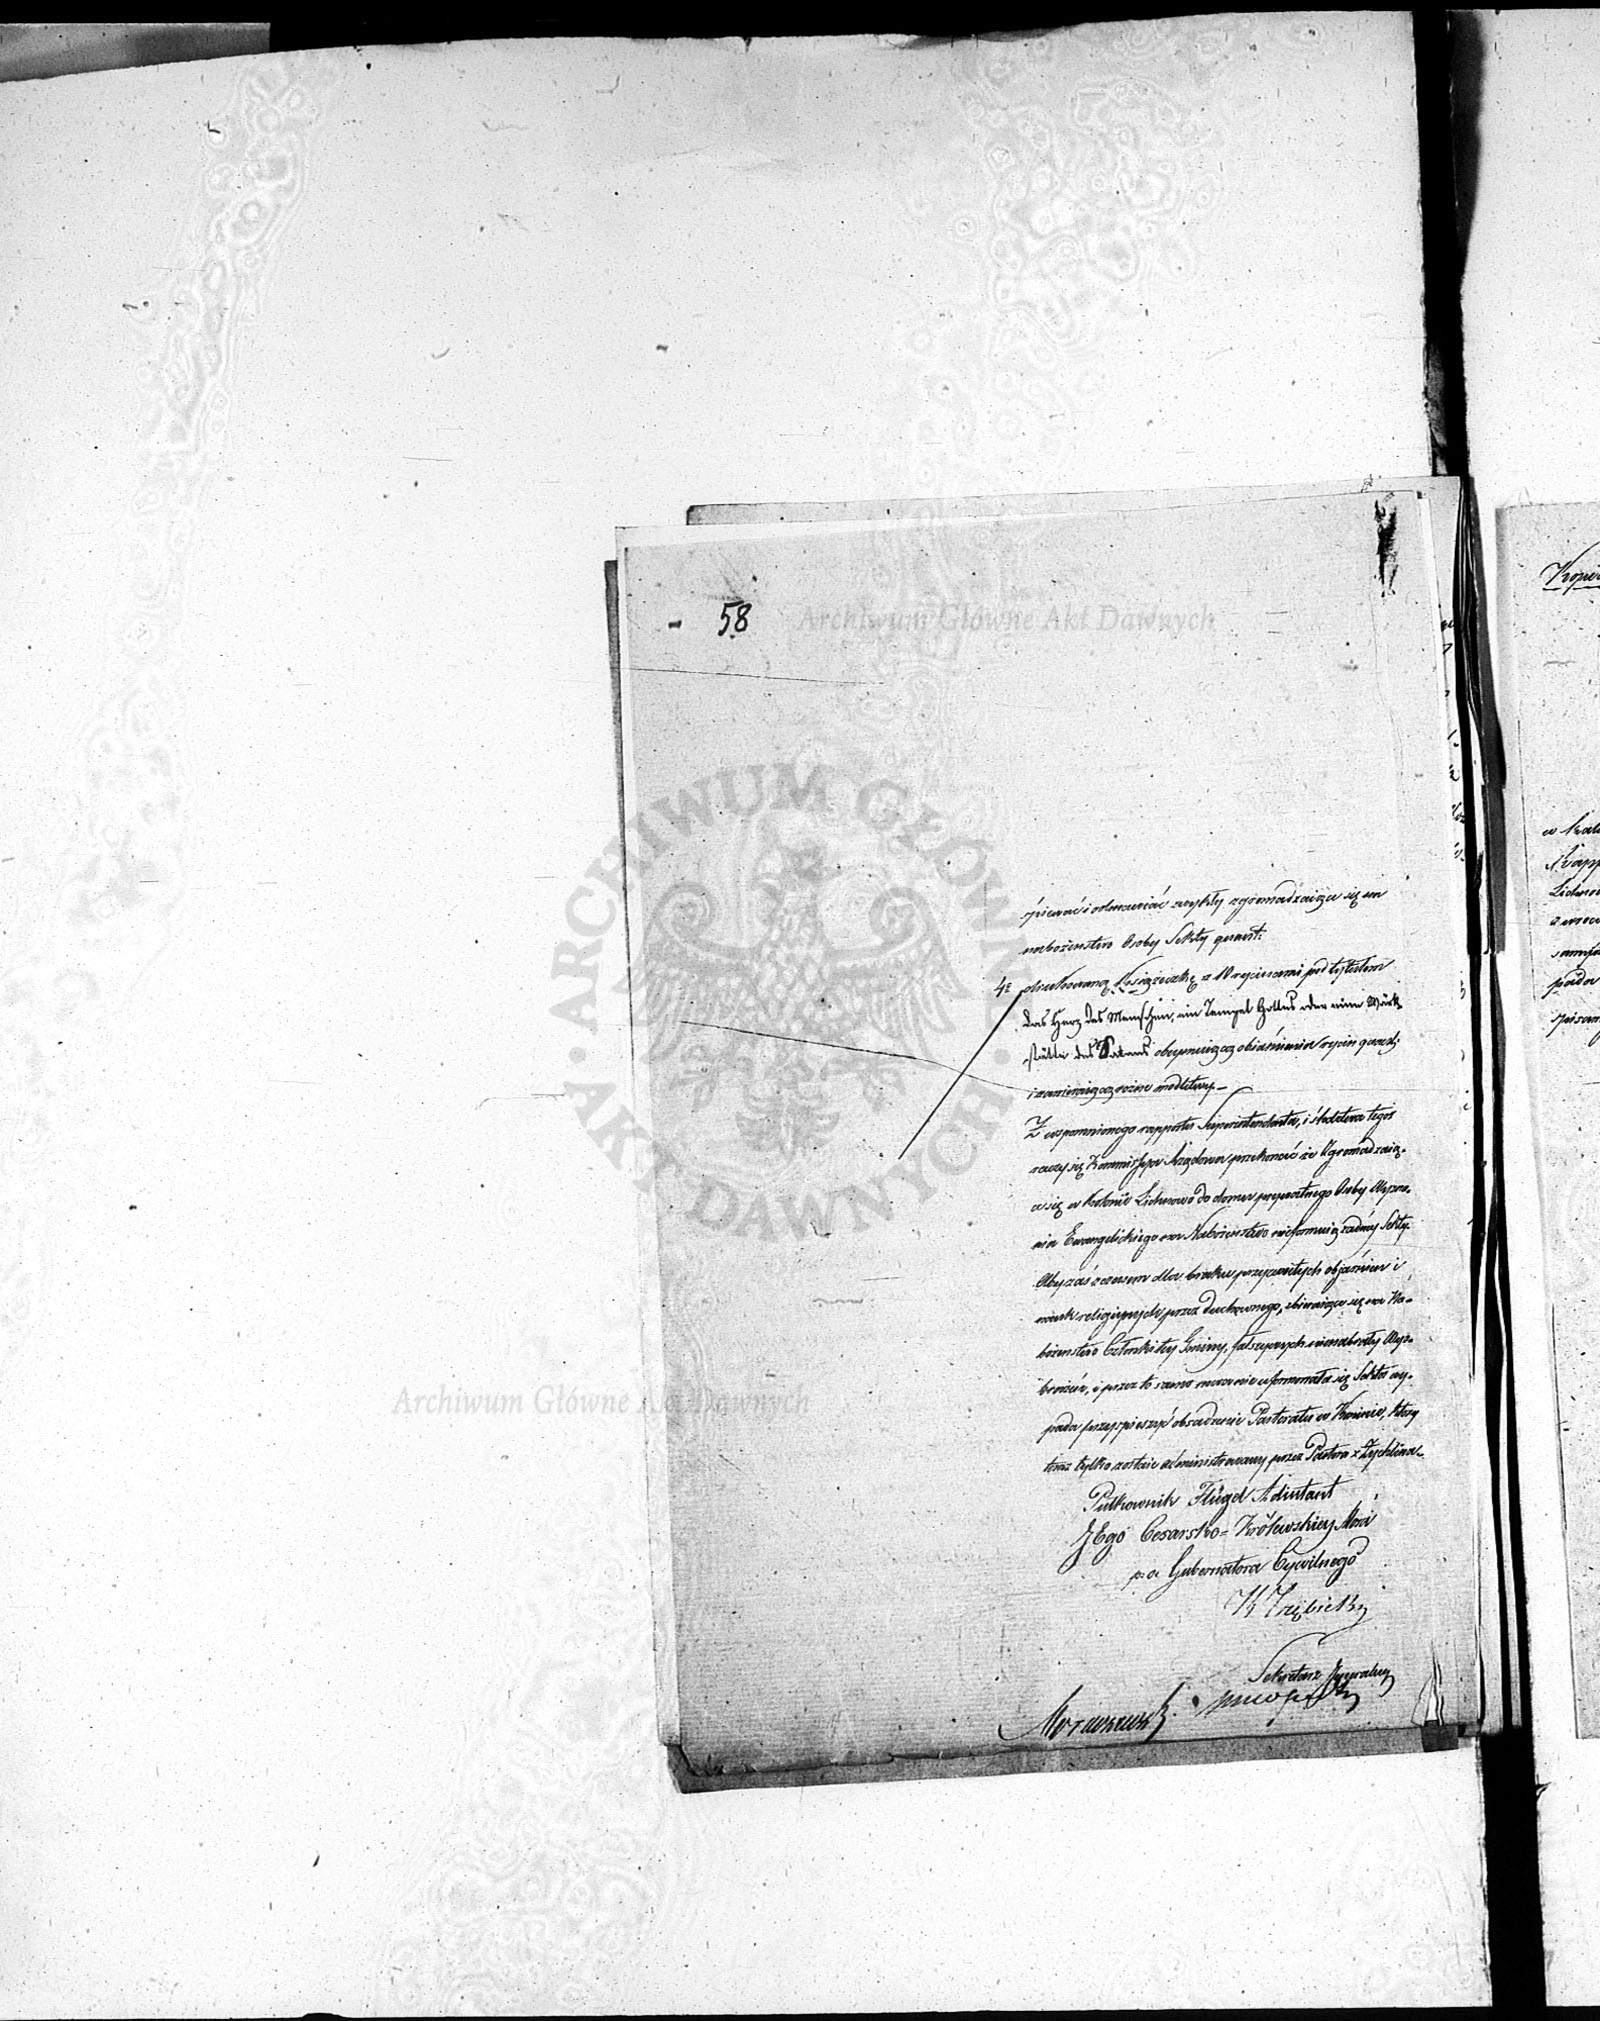 58
Archiwum Główne Akt Dawnych
ARCHIWUM GŁÓWNE
AKT DAWNYCH
śpiewać i odmawiać zwykły zgromadzaiące się na
nabożeństwo Osoby Sekty quaest:
4º drukowaną Książeczkę z 10 rycinami pod tytułem
Das Herz des Menschen, ein Tempel Gottes oder eine Werk-
stätte des Satans obeymuiącą obiaśnienia rycin quaest:
i zawieraiącą różne modlitwy.—
Z wspomnionego rapportu Superintendenta, i śledztwa tegoż
raczy się Kommissya Rządowa przekonać że Zgromadzaią-
ce się w Kolonii Lichnowo do domu prywatnego Osoby Wyzna-
nia Ewangelickiego na Nabożeństwo nieformuią żadnéy Sekty.
Aby zaś z czasem dla braku przyzwoitych objaśnień i
nauk religijnych przez duchownego, zbieraiące się na Na-
bożeństwo Członki téy Gminy, fałszywych nienabrały Wyo-
brażeń, i przez to samo nie uformowała się Sekta wy-
pada przyspieszyć obsadzenie Pastoratu w Koninie, który
teraz tylko zostaie administrowany przez Pastora z Zychlina.
Pułkownik Flügel Adiutant
JEgo Cesarsko-Królewskiey Mości
p.o. Gubernatora Cywilnego
Sekretarz Jeneralny
Archiwum Główne Akt Dawnych
Kopia